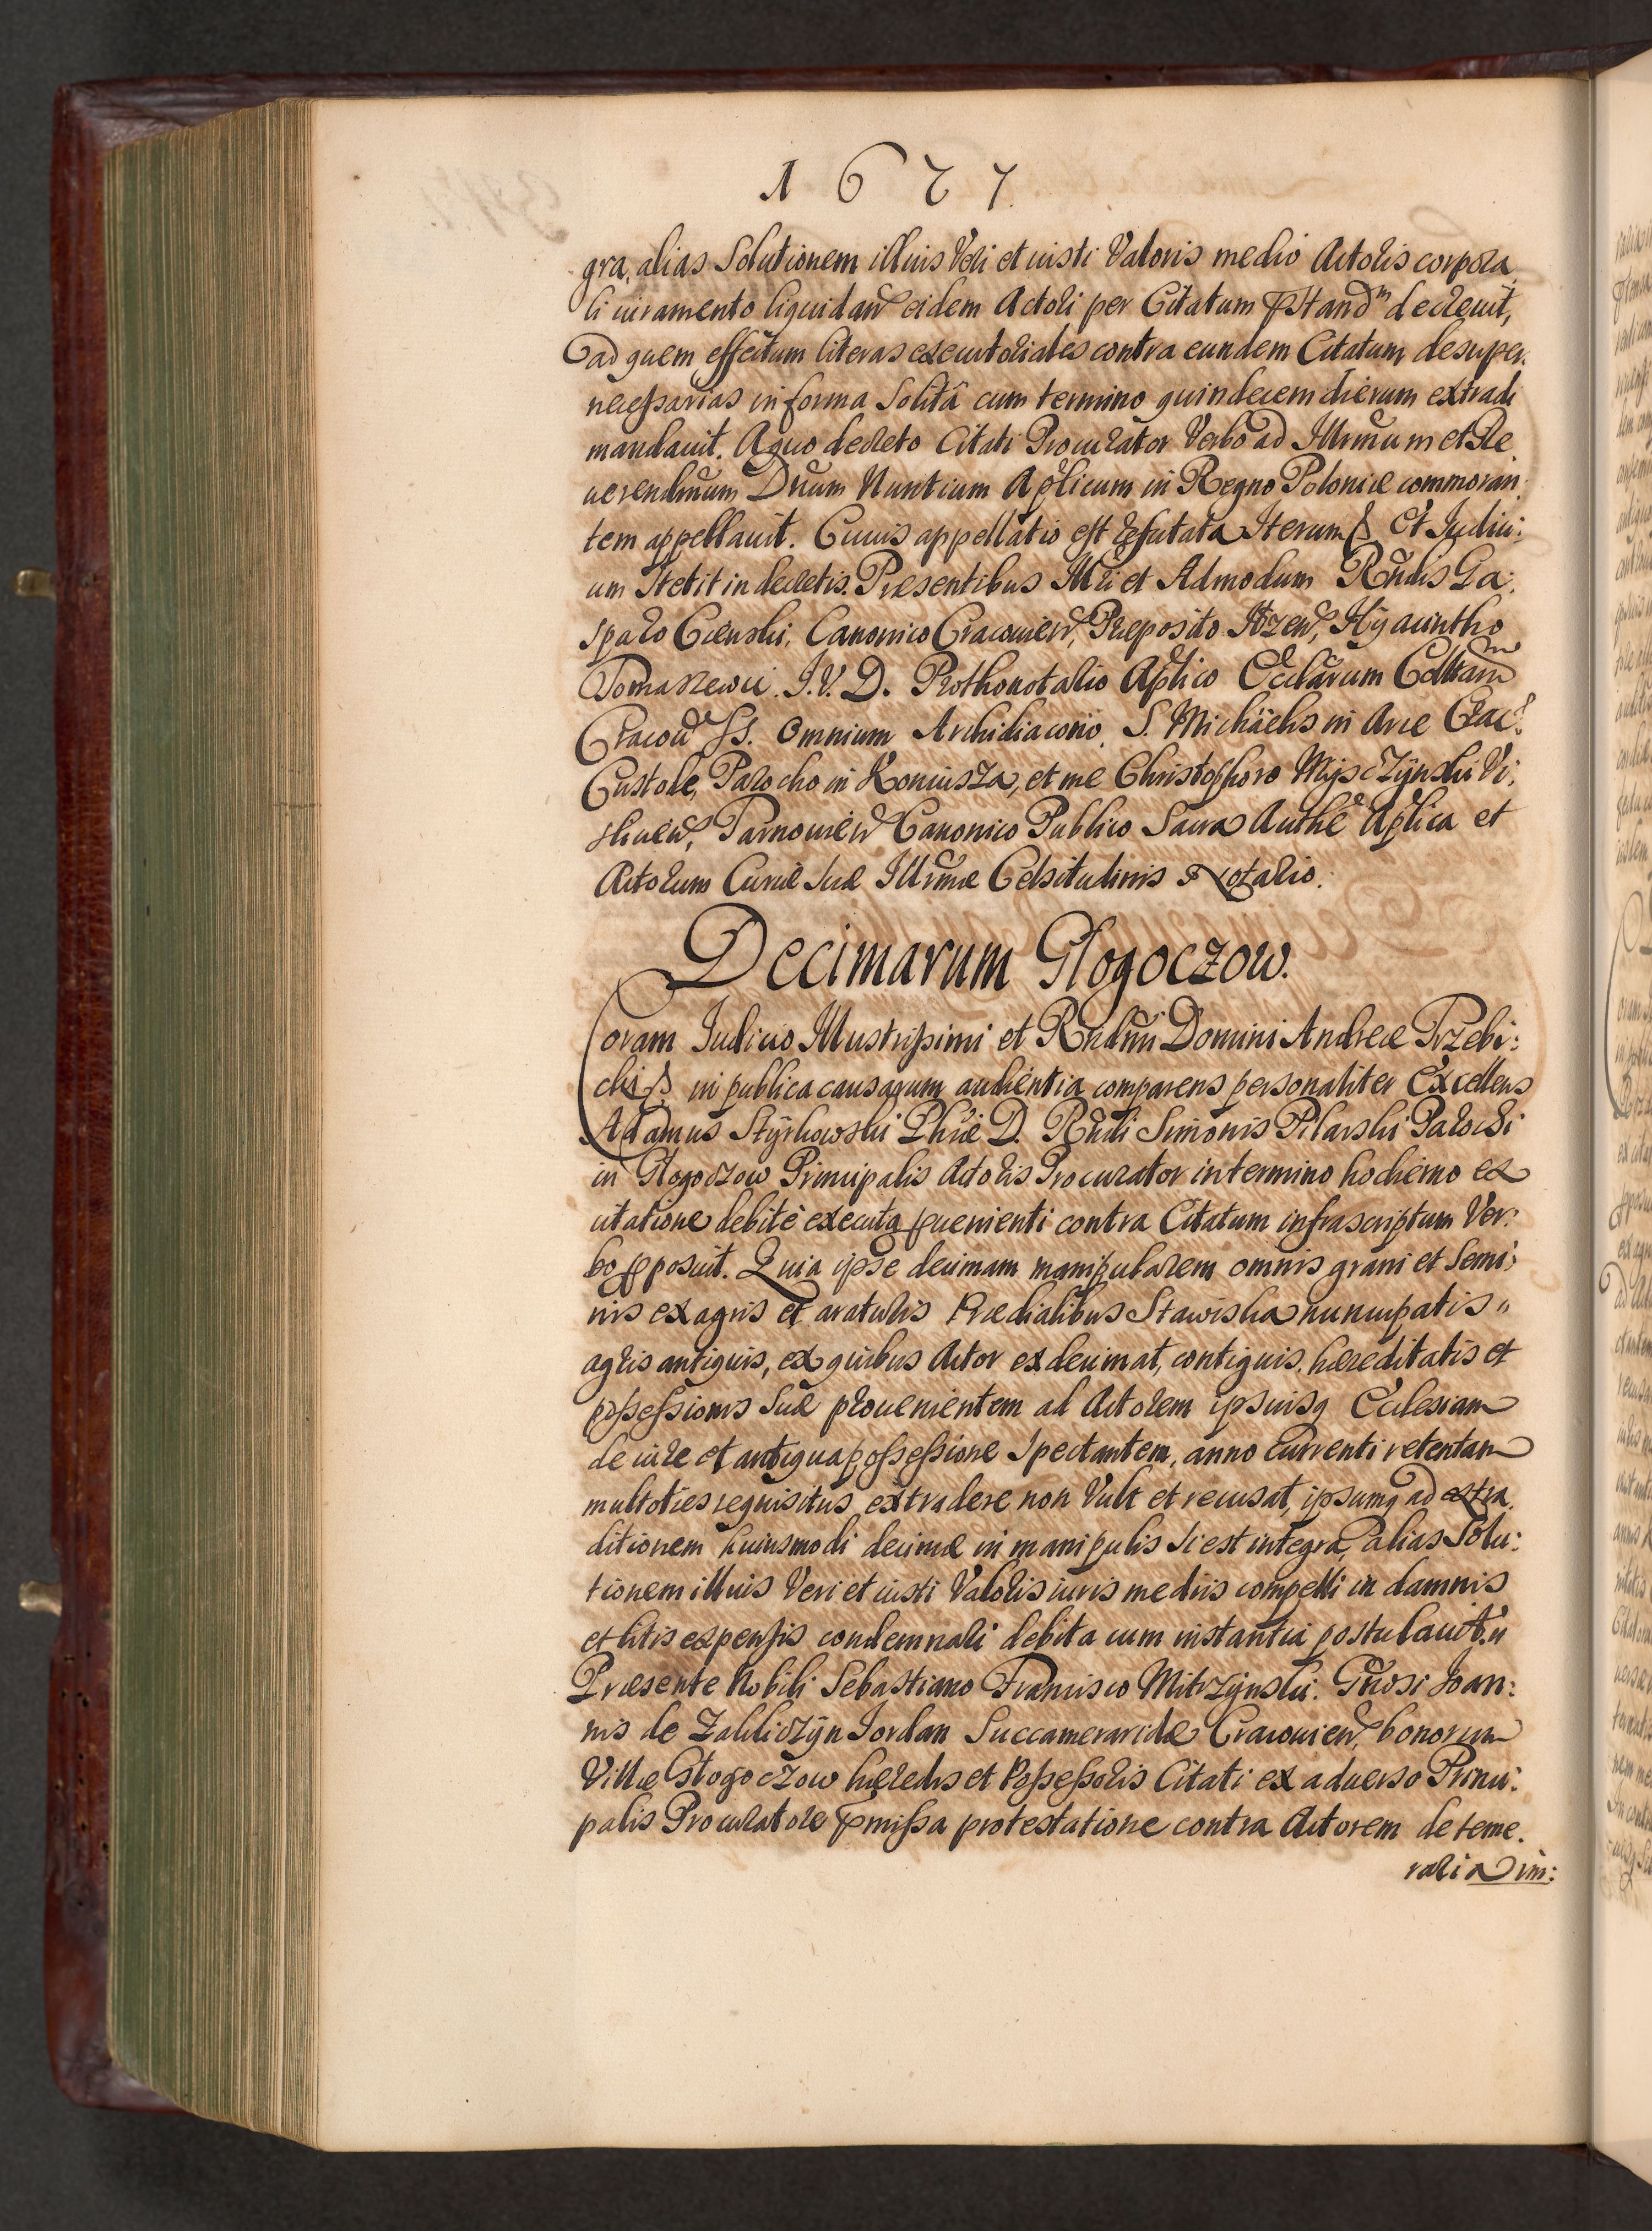 1677.
gra, alias Solutionem illius Veri et iusti Valoris medio Actoris corpora
li iuramento liquidan eidem Actori per Citatum pstandm decreuit,
ad quem effectum literas executoriales contra eundem Citatum desuper
necessarias in forma Solitâ cum termino quindecem dierum extradi
mandauit. A quo decreto Citati Procurator Verbo ad Illrmum et Re
uerendmum Dnum Nuntium Aplicum in Regno Poloniæ commoran
tem appellauit. Cuius appellatio est refutata Iterum ß Et Iudici:
um Stetit in decretis. Præsentibus Illri et Admodum Rndis Ga:
sparo Cienski, Canonico Cracouien, Præposito Itzen, Hyacintho
Tomaszewic. I. V. D. Prothonotario Aplico Ecclarum Colltam
Cracou SS. Omnium Archidiacono, S. Michäelis in Arce Crac:
Custode, Parocho in Koniusza, et me Christophoro Mysczynski Vi:
sliuen, Tarnouien Canonico Publico Sacra Authe Aplica et
Actorum Curiæ Suæ Illrmæ Celsitudinis Notario.
Decimarum Glogoczow.
Coram Iudicio Illustrissimi et Rndmi Domini Andreæ Trzebi:
cki ß in publica causarum audientia comparens personaliter Excellens
Adamus Styrkowski Phiæ D. Rndi Simonis Pilarski Parochi
in Glogoczow Principalis Actoris Procurator in termino hodierno ex
citatione debitè executa puenienti contra Citatum infrascriptum Ver:
bo pposuit. Quia ipse decimam manipularem omnis grani et Semi:
nis ex agris et araturis Prædialibus Stawiska nuncupatis
agris antiquis, ex quibus Actor exdecimat, contiguis, hæreditatis et
possessionis Suæ prouenientem ad Actorem ipsiusq Ecclesiam
de iure et antiqua possessione Spectantem, anno currenti retentam
multoties requisitus extradere non Vult et recusat, ipsumq ad extra
ditionem huiusmodi decimæ in manipulis si est integra, alias Solu:
tionem illius Veri et iusti Valoris iuris mediis compelli in damnis
et litis expensis condemnari debita cum instantia postulauit.
Præsente Nobili Sebastiano Francisco Mitrzynski. Gnosi Ioan:
nis de Zakliczyn Iordan Succameraridæ Cracouien, bonorum
Villæ Glogoczow hæredis et Possessoris Citati ex aduerso Princi:
palis Procuratore pmissa protestatione contra Actorem de teme.
raria im: